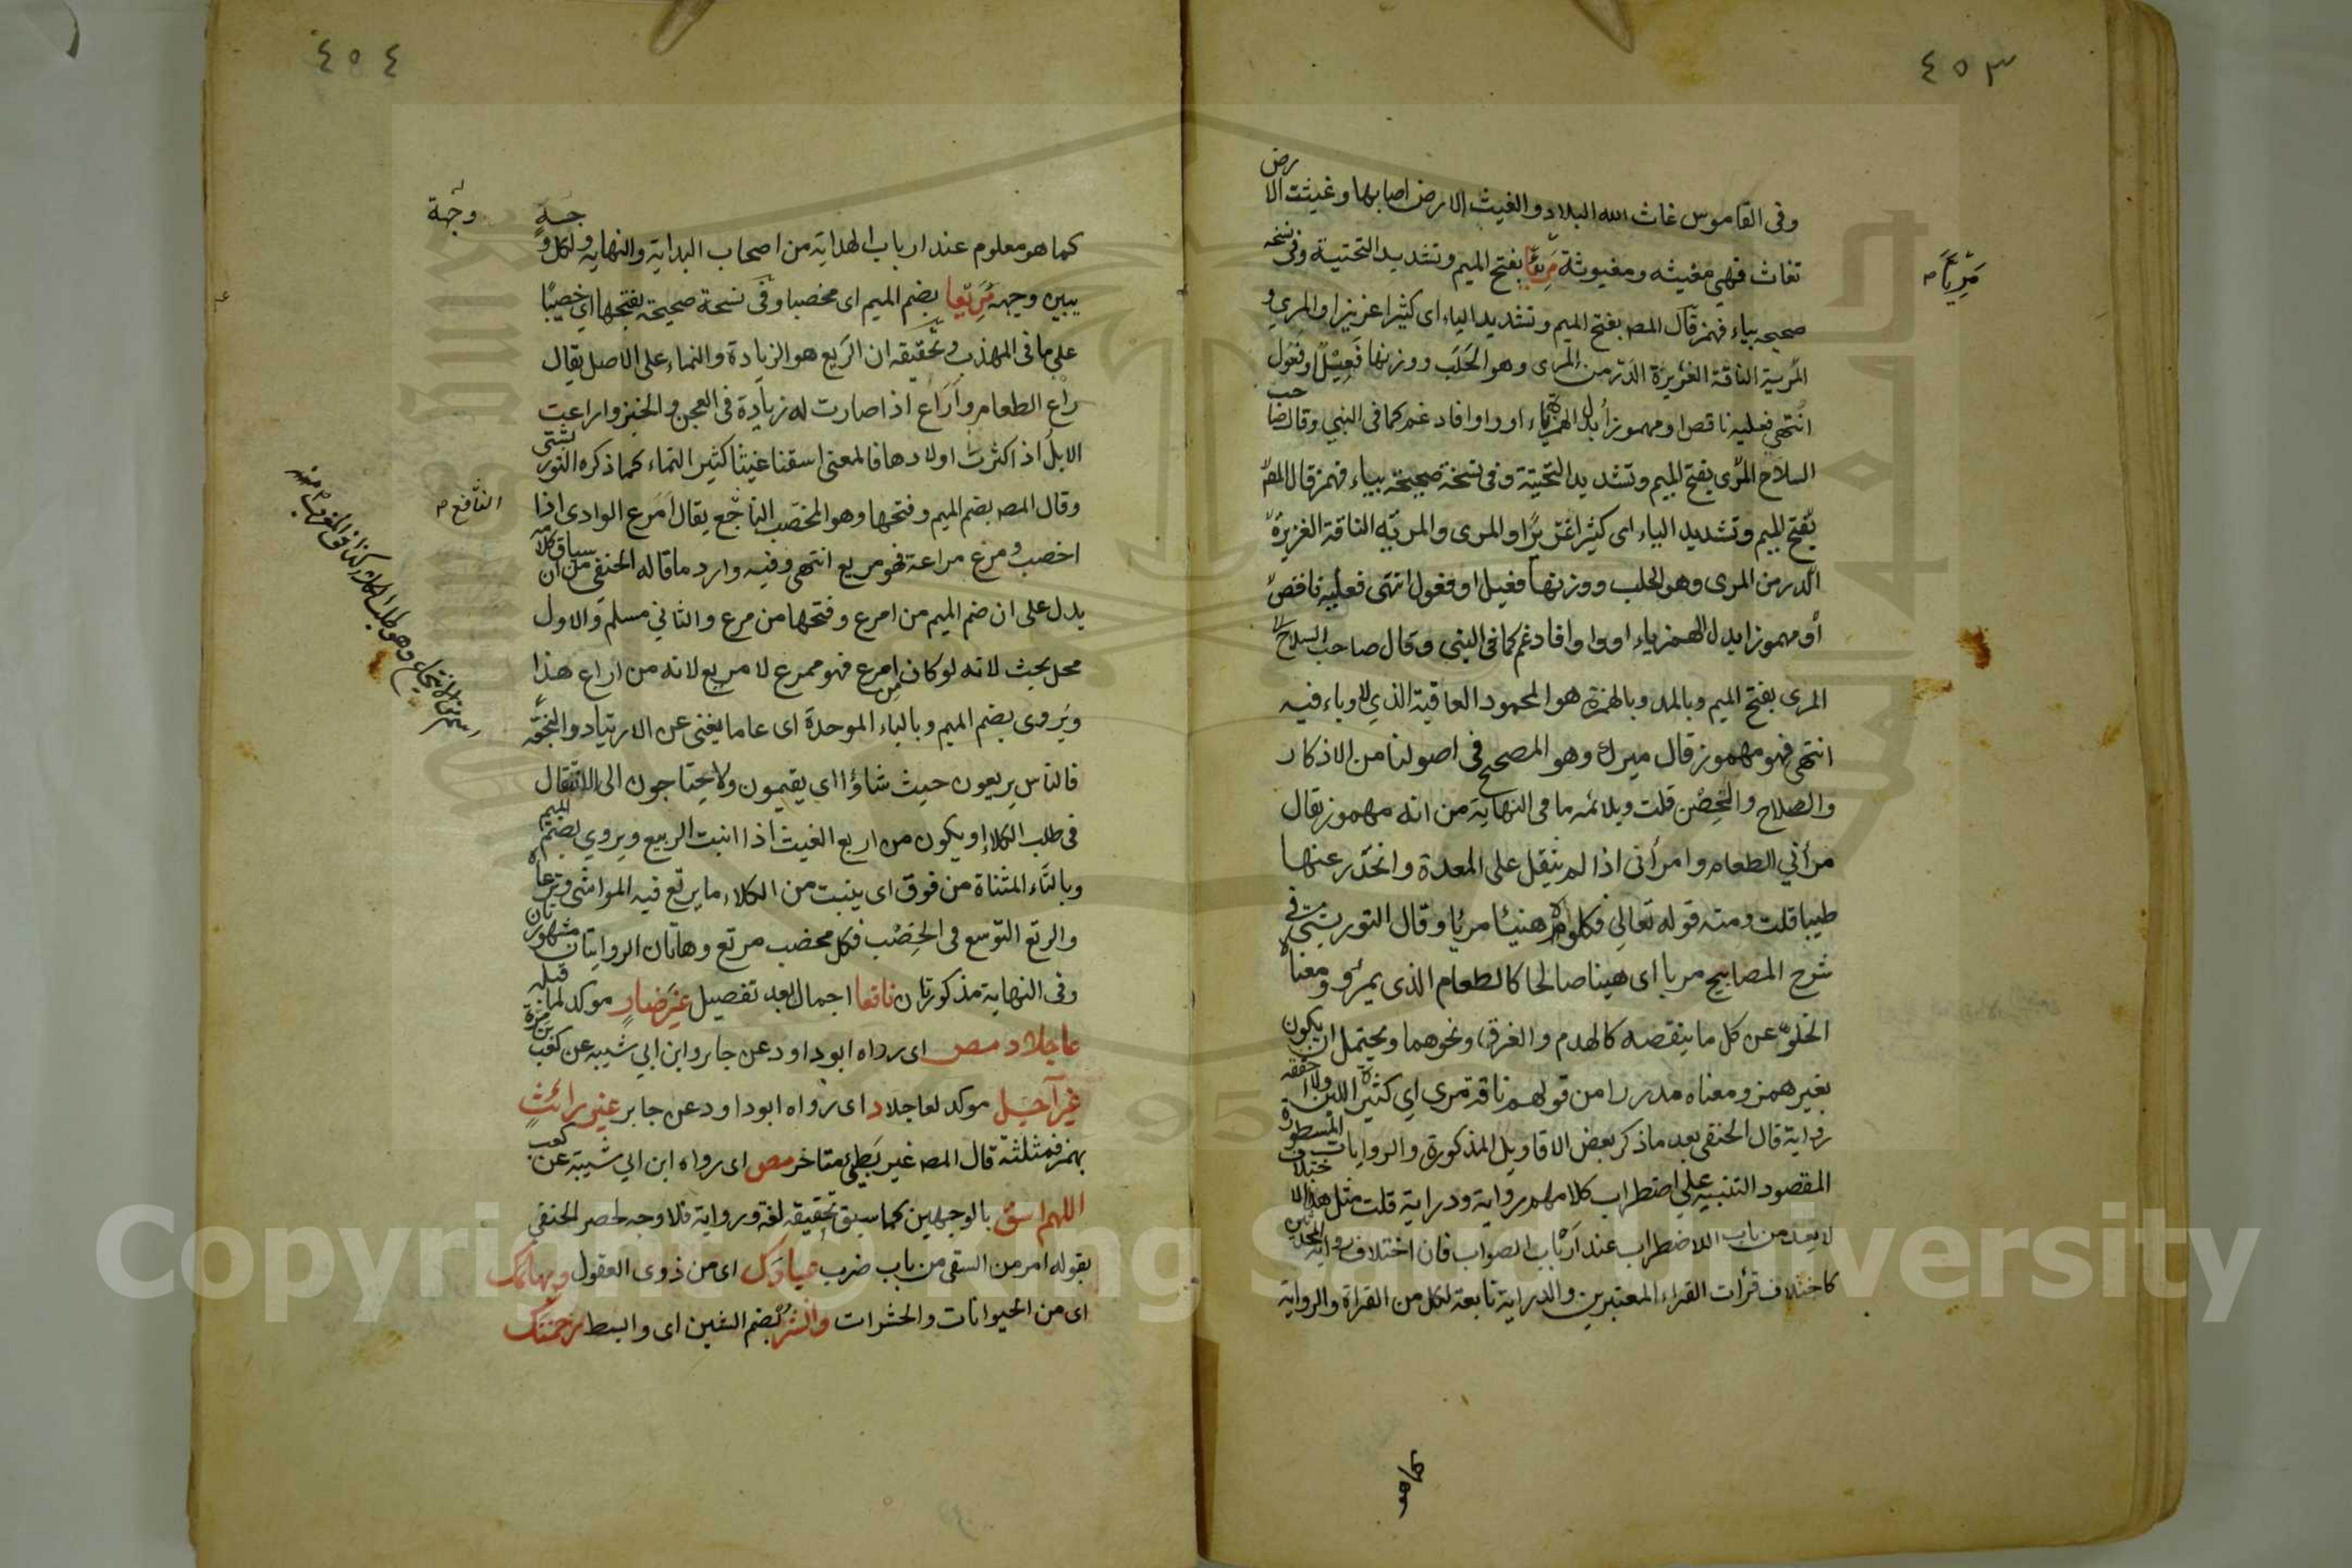 ٤٥٣
وفى القاموس غاث الله البلاد والغيث الارض اصابها وغيثت الارض
تغاث فهي مغيثه ومغيوثة مَرِيًّا بفتح الميم وتشديد التحتية وفى نسخه
صحيحه بياء فهمز قال المصـ بفتح الميم وتشديد الياء اى كثيرا غزيزا والمري و
المرية الناقة الغزيرة الدر من المرى وهو الحَلَب ووزنها فَعِيْلٌ او فعُول
انتهى فعليه ناقص او مهموز أبدل الهمزة ياء او واوا فادغم كما فى النبي وقال صاحب
السلاح المرّى بفتح الميم وتشديد التحتية وفى نسخة صحيحة بياء فهمز قال المصـ
بفتح الميم وتشديد الياء اى كثيرا غزيرًا والمرى والمريّه الناقة الغزيرة
الدر من المرى وهو الحلب ووزنها فعيل او فعول انتهى فعليه ناقص
أو مهموز ابدل الهمز ياء او واوا فادغم كما فى النبى وقال صاحب السلاح
المرى بفتح الميم وبالمد وبالهمزة هو المحمود العاقبة الذي لا وباء فيه
انتهى فهو مهموز قال ميرك وهو المصحح فى اصولنا من الاذكار
والصلاح والحِصْن قلت ويلائمه ما فى النهاية من انه مهموز يقال
مرأني الطعام وامرأنى اذا لم يثقل على المعدة وانحدر عنها
طيبا قلت ومنه قوله تعالى فكلوه هنيئا مريًا وقال التوربشتي فى
شرح المصابيح مريا اى هنيئا صالحا كالطعام الذى يمرؤ ومعناه
الخلوّ عن كل ما ينقصه كالهدم والغرق ونحوهما ويحتمل ان يكون
بغير همز ومعناه مدررا من قولهم ناقة مرى اي كثيرة اللبن ولا احققه
رواية قال الحنفى بعد ما ذكر بعض الاقاويل المذكورة والروايات المسطورة
المقصود التنبيه على اضطراب كلامهم رواية ودراية قلت مثل هذا الاختلاف
لا يعد من باب الاضطراب عند ارباب الصواب فان اختلاف رواية المحدثين
كاختلاف قرأت القراء المعتبرين والدراية تابعة لكل من القراة والرواية
مَرِيْأً صـ
٤٥٤
كما هو معلوم عند ارباب الهداية من اصحاب البداية والنهايه ولكل وجهةٍ
يبين وجهه مُرِيْعا بضم الميم اى مخصبا وفى نسخة صحيحة بفتحها اي خصيبًا
على ما فى المهذب وتحقيقه ان الرَيع هو الزيادة والنماء على الاصل يقال
راع الطعام واَرَاع اذا صارت له زيادة فى العجن والخبز واراعت
الابلُ اذ اكثرت اولادها فالمعنى اسقنا غيثا كثير النماء كما ذكره التوربشتى
وقال المصـ بضم الميم وفتحها وهو المخصب الناجع يقال اَمْرع الوادى اذا
اخصب ومرع مراعة فهو مريع انتهى وفيه وارد ما قاله الحنفى من ان سياق كلامه
يدل على ان ضم الميم من امرع وفتحها من مرع والثاني مسلم والاول
محل بحث لانه لو كان من امرع فهو ممرع لا مريع لانه من اراع هذا
ويَروى بضم الميم وبالباء الموحدة اى عاما يغنى عن الارتياد والنجْعة
فالناس يربعون حيث شاؤا اى يقيمون ولا يحتاجون الى الانتقال
فى طلب الكلاء او يكون من اربع الغيث اذا انبت الربيع ويروي بضم الميم
وبالتّاء المثناة من فوق اى ينبت من الكلاء ما يرتع فيه المواشى وترعاه
والرتع التوسع فى الخِصْب فكل مخصب مرتع وهاتان الروايتان مشهورتان
وفى النهاية مذكورتان نافعا اجمال بعد تفصيل غيرَ ضارٍ موكد لما قبله
عاجلا د مصـ اى رواه ابو داود عن جابر وابن ابي شيبه عن كعب بن مرة
غير آجِل موكد لعاجلا د اى رواه ابو داود عن جابر غير رائثٍ
بهمز فمثلثة قال المصـ غير بَطِئ متاخر مص اى رواه ابن ابي شيبة عن كعب
اللهم اسق بالوجهين كما سبق تحقيقه لغة ورواية فلا وجه لحصر الحنفى
بقوله امر من السقى من باب ضرب عبادك اى من ذوى العقول وبهائمك
اى من الحيوانات والحشرات وانشر بضم الشين اى وابسط رحمتك
وجهة
النافع صـ